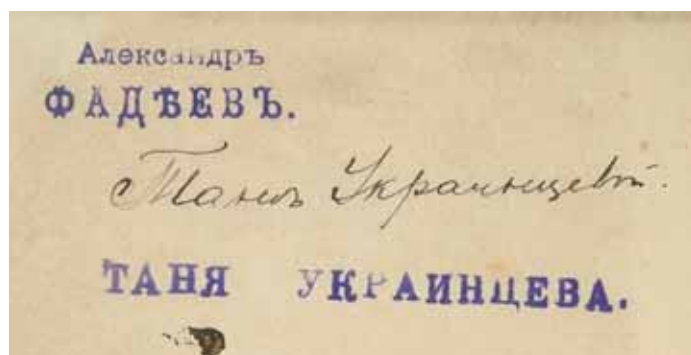 Александръ
ФАДѢЕВЪ.
Танѣ Украинцевой.
ТАНЯ УКРАИНЦЕВА.